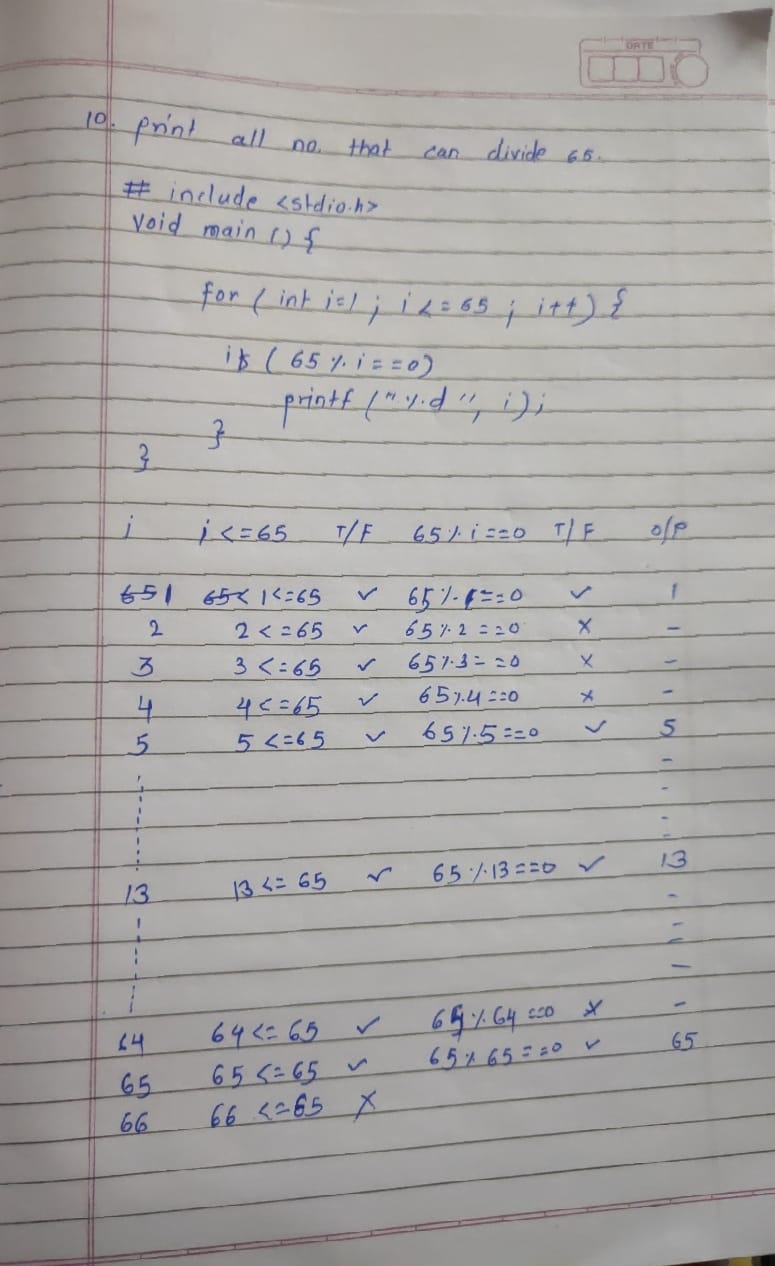 DATE
10. print all no. that can divide 65.
# include <stdio.h>
void main () {
for ( int i=1 ; i <= 65 ; i++) {
if ( 65 % i == 0)
printf ("%d", i);
}
}
i i<=65 T/F 65 % i ==0 T/F o/p
651 65< 1<=65 ✓ 65 % 1==0 ✓ 1
2 2<=65 ✓ 65 % 2 ==0 × -
3 3 <=65 ✓ 65%3==0 × -
4 4<=65 ✓ 65%4==0 × -
5 5 <=65 ✓ 65%5==0 ✓ 5
13 13 <= 65 ✓ 65 % 13 ==0 ✓ 13
64 64<= 65 ✓ 65 % 64 ==0 × -
65 65 <=65 ✓ 65 % 65 ==0 ✓ 65
66 66 <=65 ×